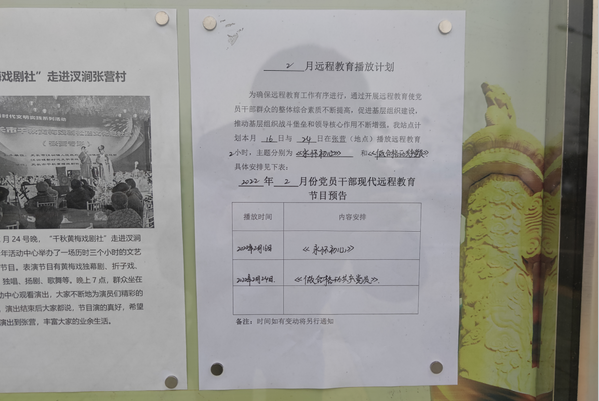 戏剧社”走进汊涧张营村
月24号晚，“千秋黄梅戏剧社”走进汊涧
年活动中心举办了一场历时三个小时的文艺
节目。表演节目有黄梅戏独幕剧、折子戏、
独唱、扬剧、歌舞等。晚上7点，群众坐在
动中心观看演出，大家不断地为演员们精彩的
演出结束后大家都说，节目演的真好，希望
演出到张营，丰富大家的业余生活。
2月远程教育播放计划
为确保远程教育工作有序进行，通过开展远程教育使党
员干部群众的整体综合素质不断提高，促进基层组织建设，
推动基层组织战斗堡垒和领导核心作用不断增强。我站点计
划本月16日与24日在张营（地点）播放远程教育
2小时，主题分别为《永怀初心》和《做合格共产党员》
具体安排见下表：
2022年2月份党员干部现代远程教育
节目预告
播放时间 内容安排
2022年2月16日 《永怀初心》
2022年2月24日 《做合格共产党员》
备注：时间如有变动将另行通知